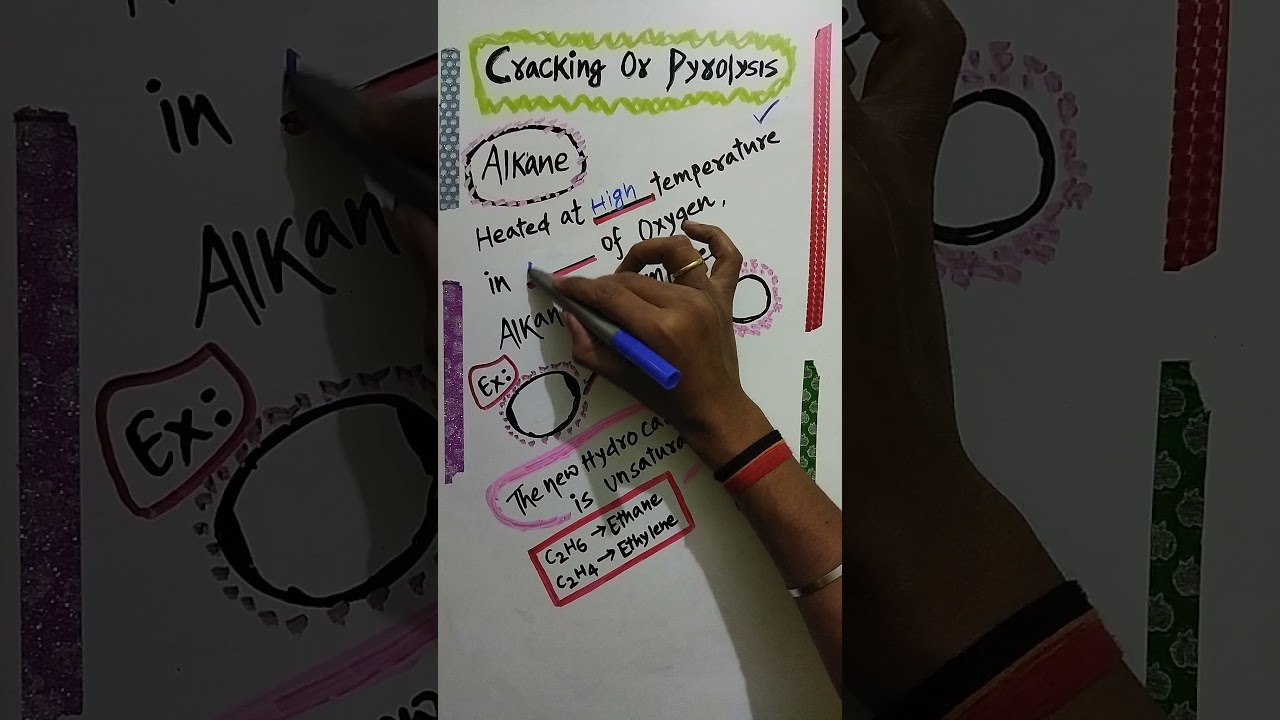 Cracking Or Pyrolysis
Alkane
Heated at High temperature
in of Oxygen,
Alkan
Ex:
The new Hydro ca
is unsatura
C2H6 → Ethane
C2H4 → Ethylene